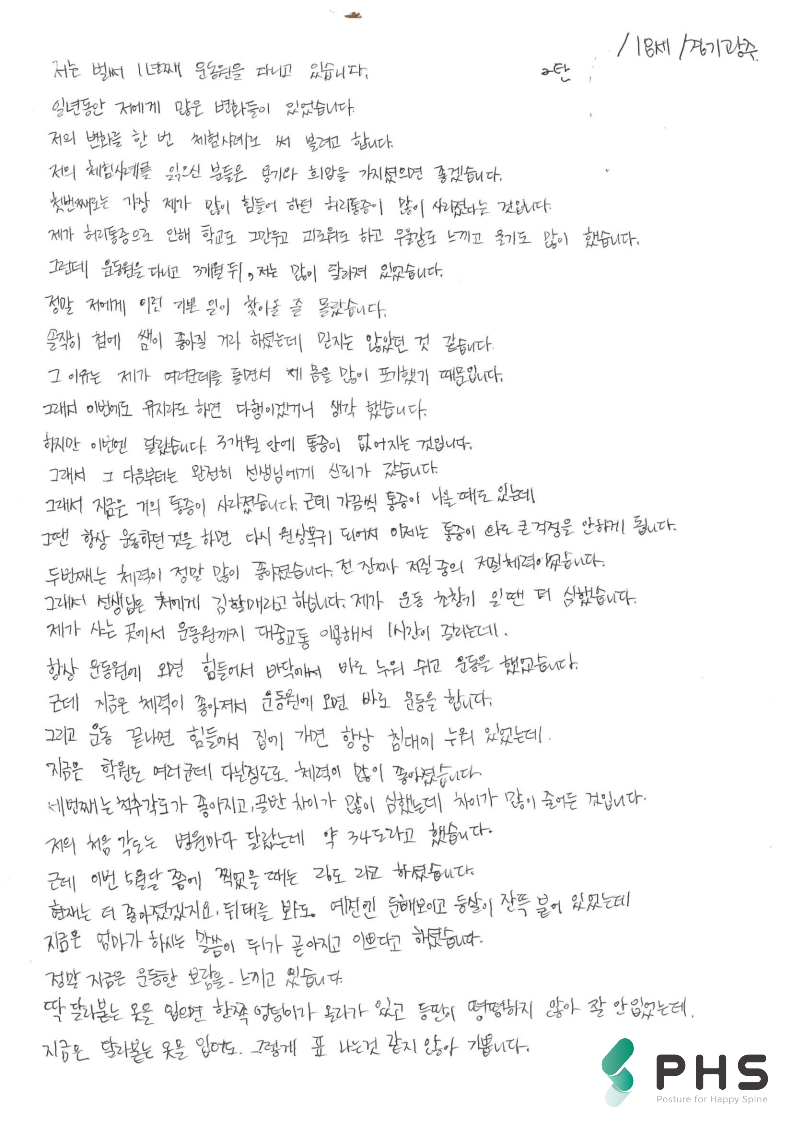 /18세/경기광주
2탄
저는 벌써 1년째 운동원을 다니고 있습니다.
일년동안 저에게 많은 변화들이 있었습니다.
저의 변화를 한 번 체험사례로 써 볼려고 합니다.
저의 체험사례를 읽으신 분들은 용기와 희망을 가지셨으면 좋겠습니다.
첫번째로는 가장 제가 많이 힘들어 하던 허리통증이 많이 사라졌다는 것입니다.
제가 허리통증으로 인해 학교도 그만두고 괴로워도 하고 우울감도 느끼고 울기도 많이 했습니다.
그런데 운동원을 다니고 3개월 뒤, 저는 많이 달라져 있었습니다.
정말 저에게 이런 기쁜 일이 찾아올 줄 몰랐습니다.
솔직히 첨에 쌤이 좋아질 거라 하셨는데 믿지는 않았던 것 같습니다.
그 이유는 제가 여러군데를 돌면서 제 몸을 많이 포기했기 때문입니다.
그래서 이번에도 유지라도 하면 다행이겠거니 생각 했습니다.
하지만 이번엔 달랐습니다. 3개월 안에 통증이 없어지는 것입니다.
그래서 그 다음부터는 완전히 선생님에게 신뢰가 갔습니다.
그래서 지금은 거의 통증이 사라졌습니다. 근데 가끔씩 통증이 나올 때도 있는데
그땐 항상 운동하던 것을 하면 다시 원상복귀 되어서 이제는 통증이 와도 큰 걱정을 안하게 됩니다.
두번째는 체력이 정말 많이 좋아졌습니다. 전 진짜 저질 중의 저질체력이었습니다.
그래서 선생님은 저에게 김할매라고 하십니다. 제가 운동 초창기 일땐 더 심했습니다.
제가 사는 곳에서 운동원까지 대중교통 이용해서 1시간이 걸리는데.
항상 운동원에 오면 힘들어서 바닥에서 바로 누워 쉬고 운동을 했었습니다.
근데 지금은 체력이 좋아져서 운동원에 오면 바로 운동을 합니다.
그리고 운동 끝나면 힘들어서 집에 가면 항상 침대에 누워 있었는데.
지금은 학원도 여러군데 다닐정도로 체력이 많이 좋아졌습니다
세번째는 척추각도가 좋아지고, 골반 차이가 많이 심했는데 차이가 많이 줄어든 것입니다.
저의 처음 각도는 병원마다 달랐는데 약 34도라고 했습니다.
근데 이번 5월달 쯤에 찍었을 때는 21도 라고 하셨습니다.
현재는 더 좋아졌겠지요. 뒤태를 봐도 예전엔 둔해보이고 등살이 잔뜩 붙어 있었는데
지금은 엄마가 하시는 말씀이 뒤가 곧아지고 이쁘다고 하셨습니다.
정말 지금은 운동한 보람을 느끼고 있습니다.
딱 달라붙는 옷을 입으면 한쪽 엉덩이가 올라가 있고 등판이 평평하지 않아 잘 안입었는데.
지금은 달라붙는 옷을 입어도 그렇게 표 나는것 같지 않아 기쁩니다.
PHS
Posture for Happy Spine